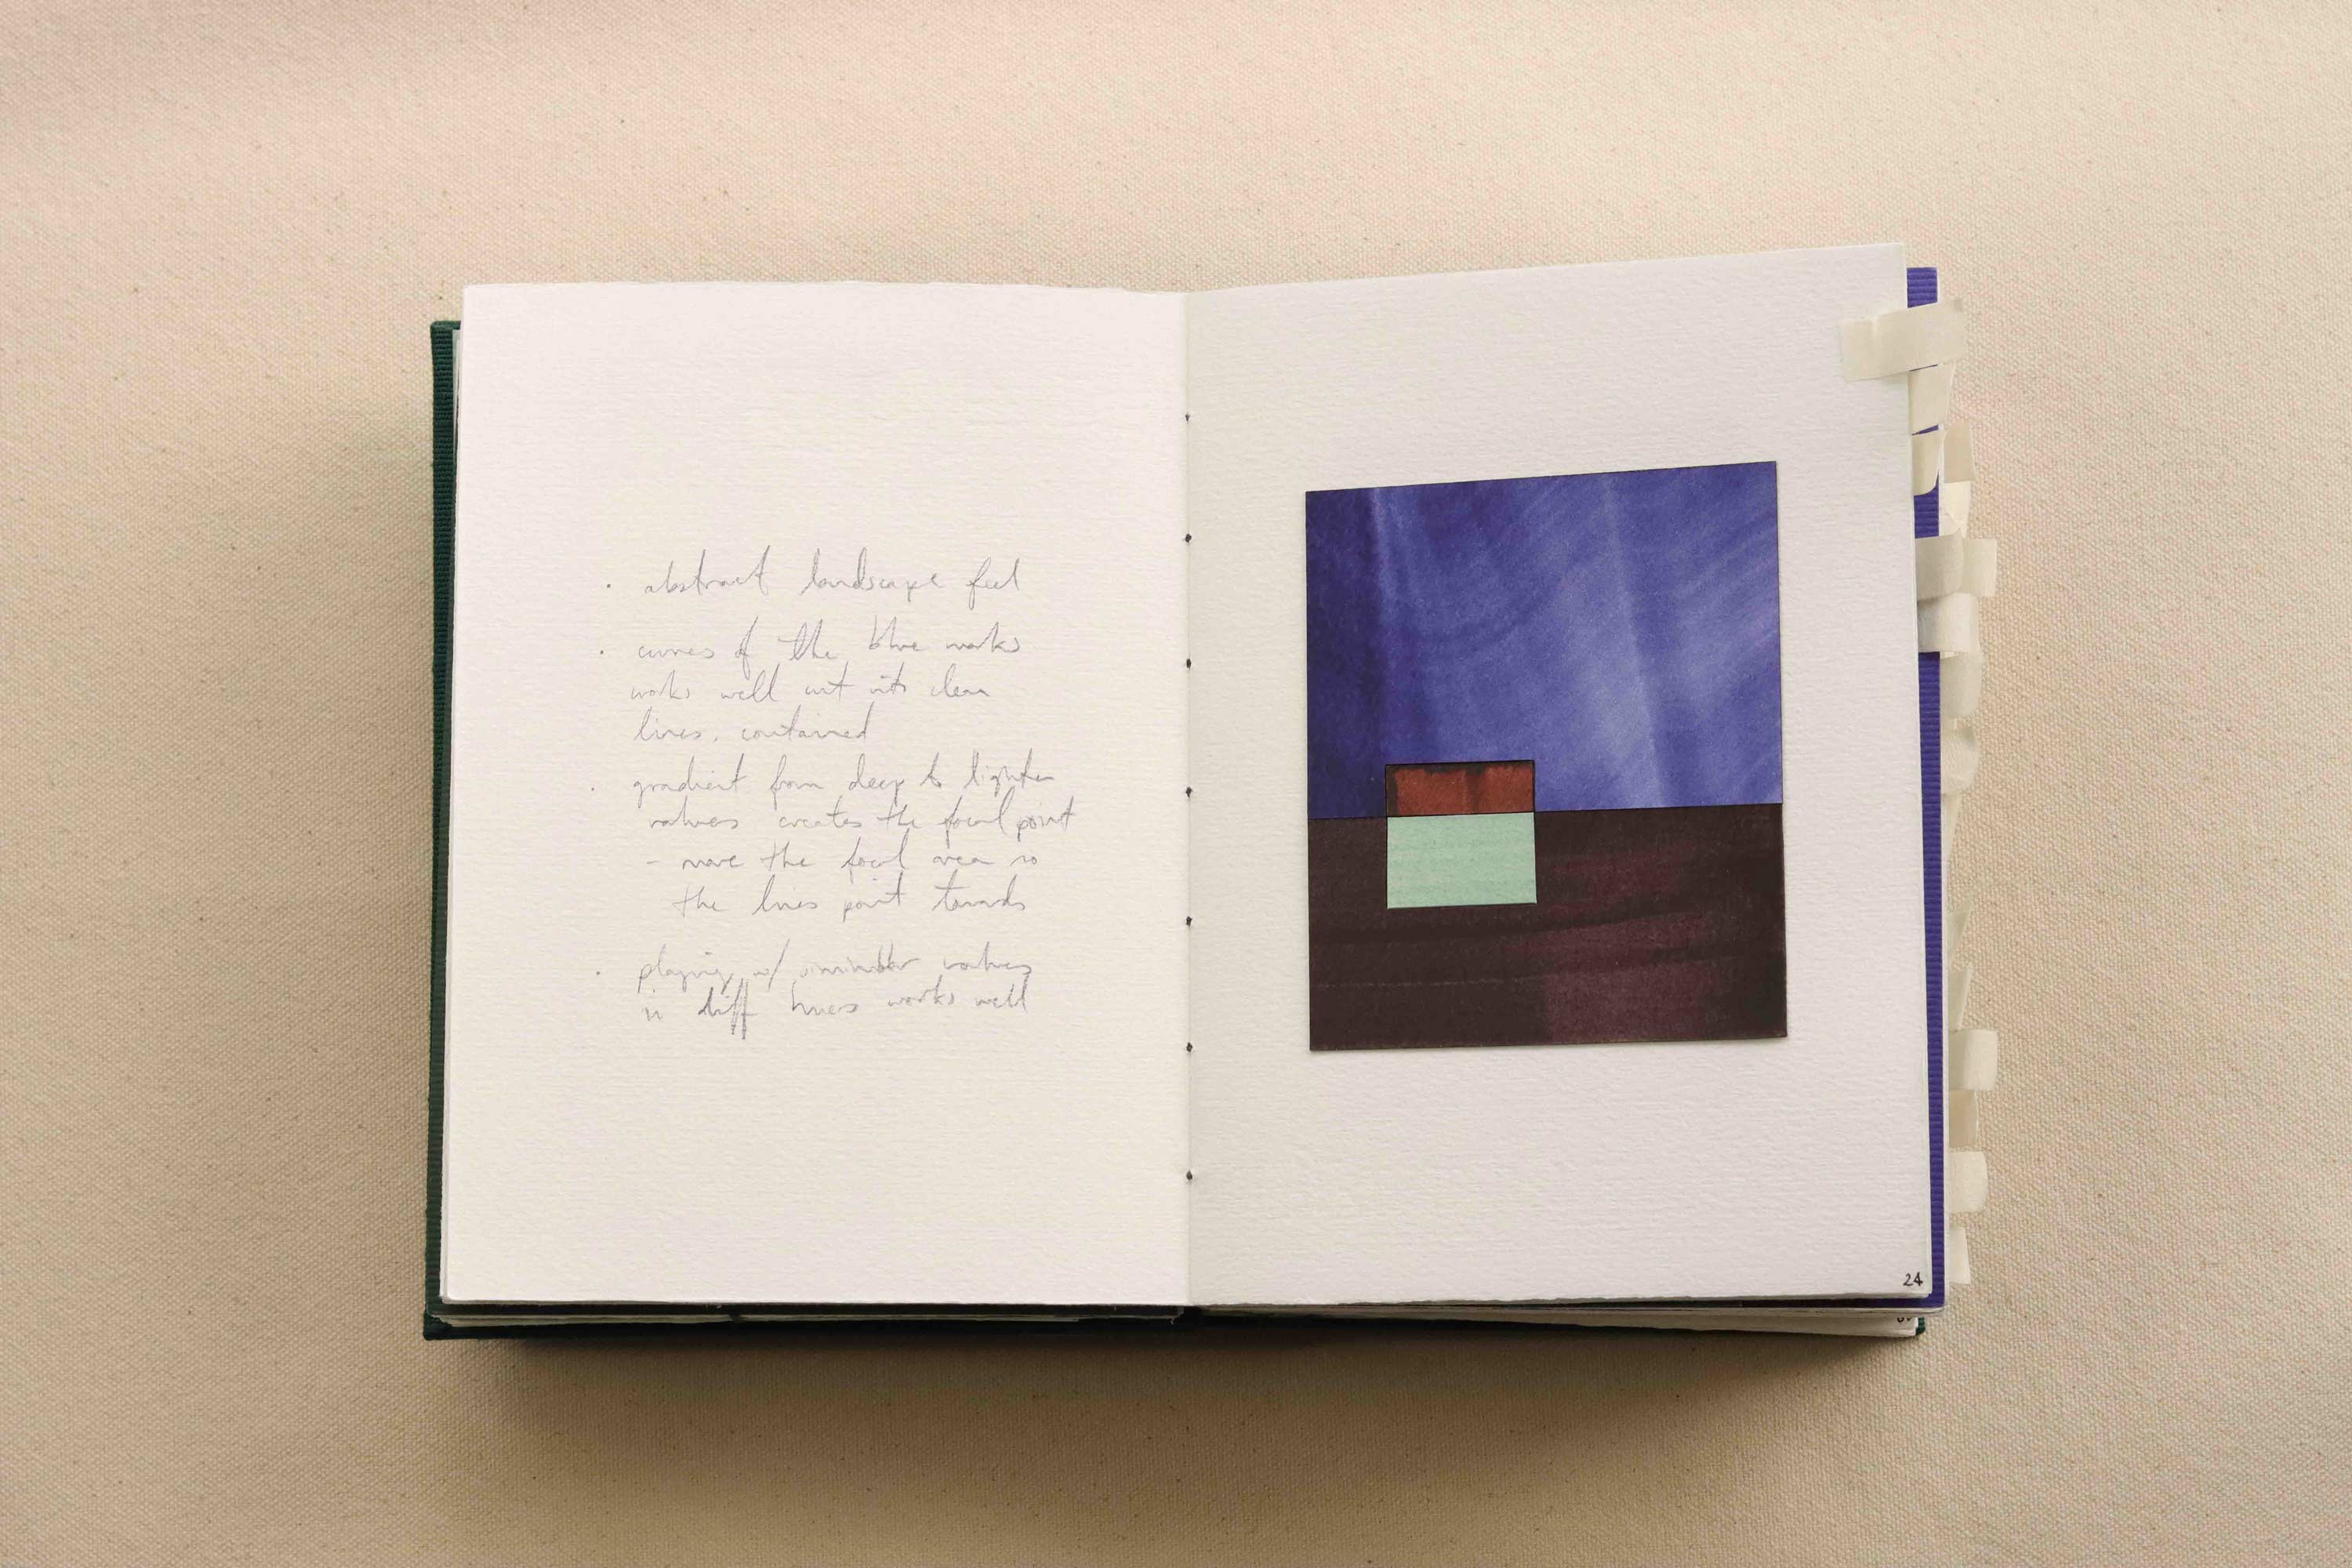 · abstract landscape feel
· curves of the blue marks
works well cut into clean
lines, contained
· gradient from deep to lighter
values creates the focal point
- move the focal area so
the lines point towards
· playing w/ similar values
in diff hues works well
24